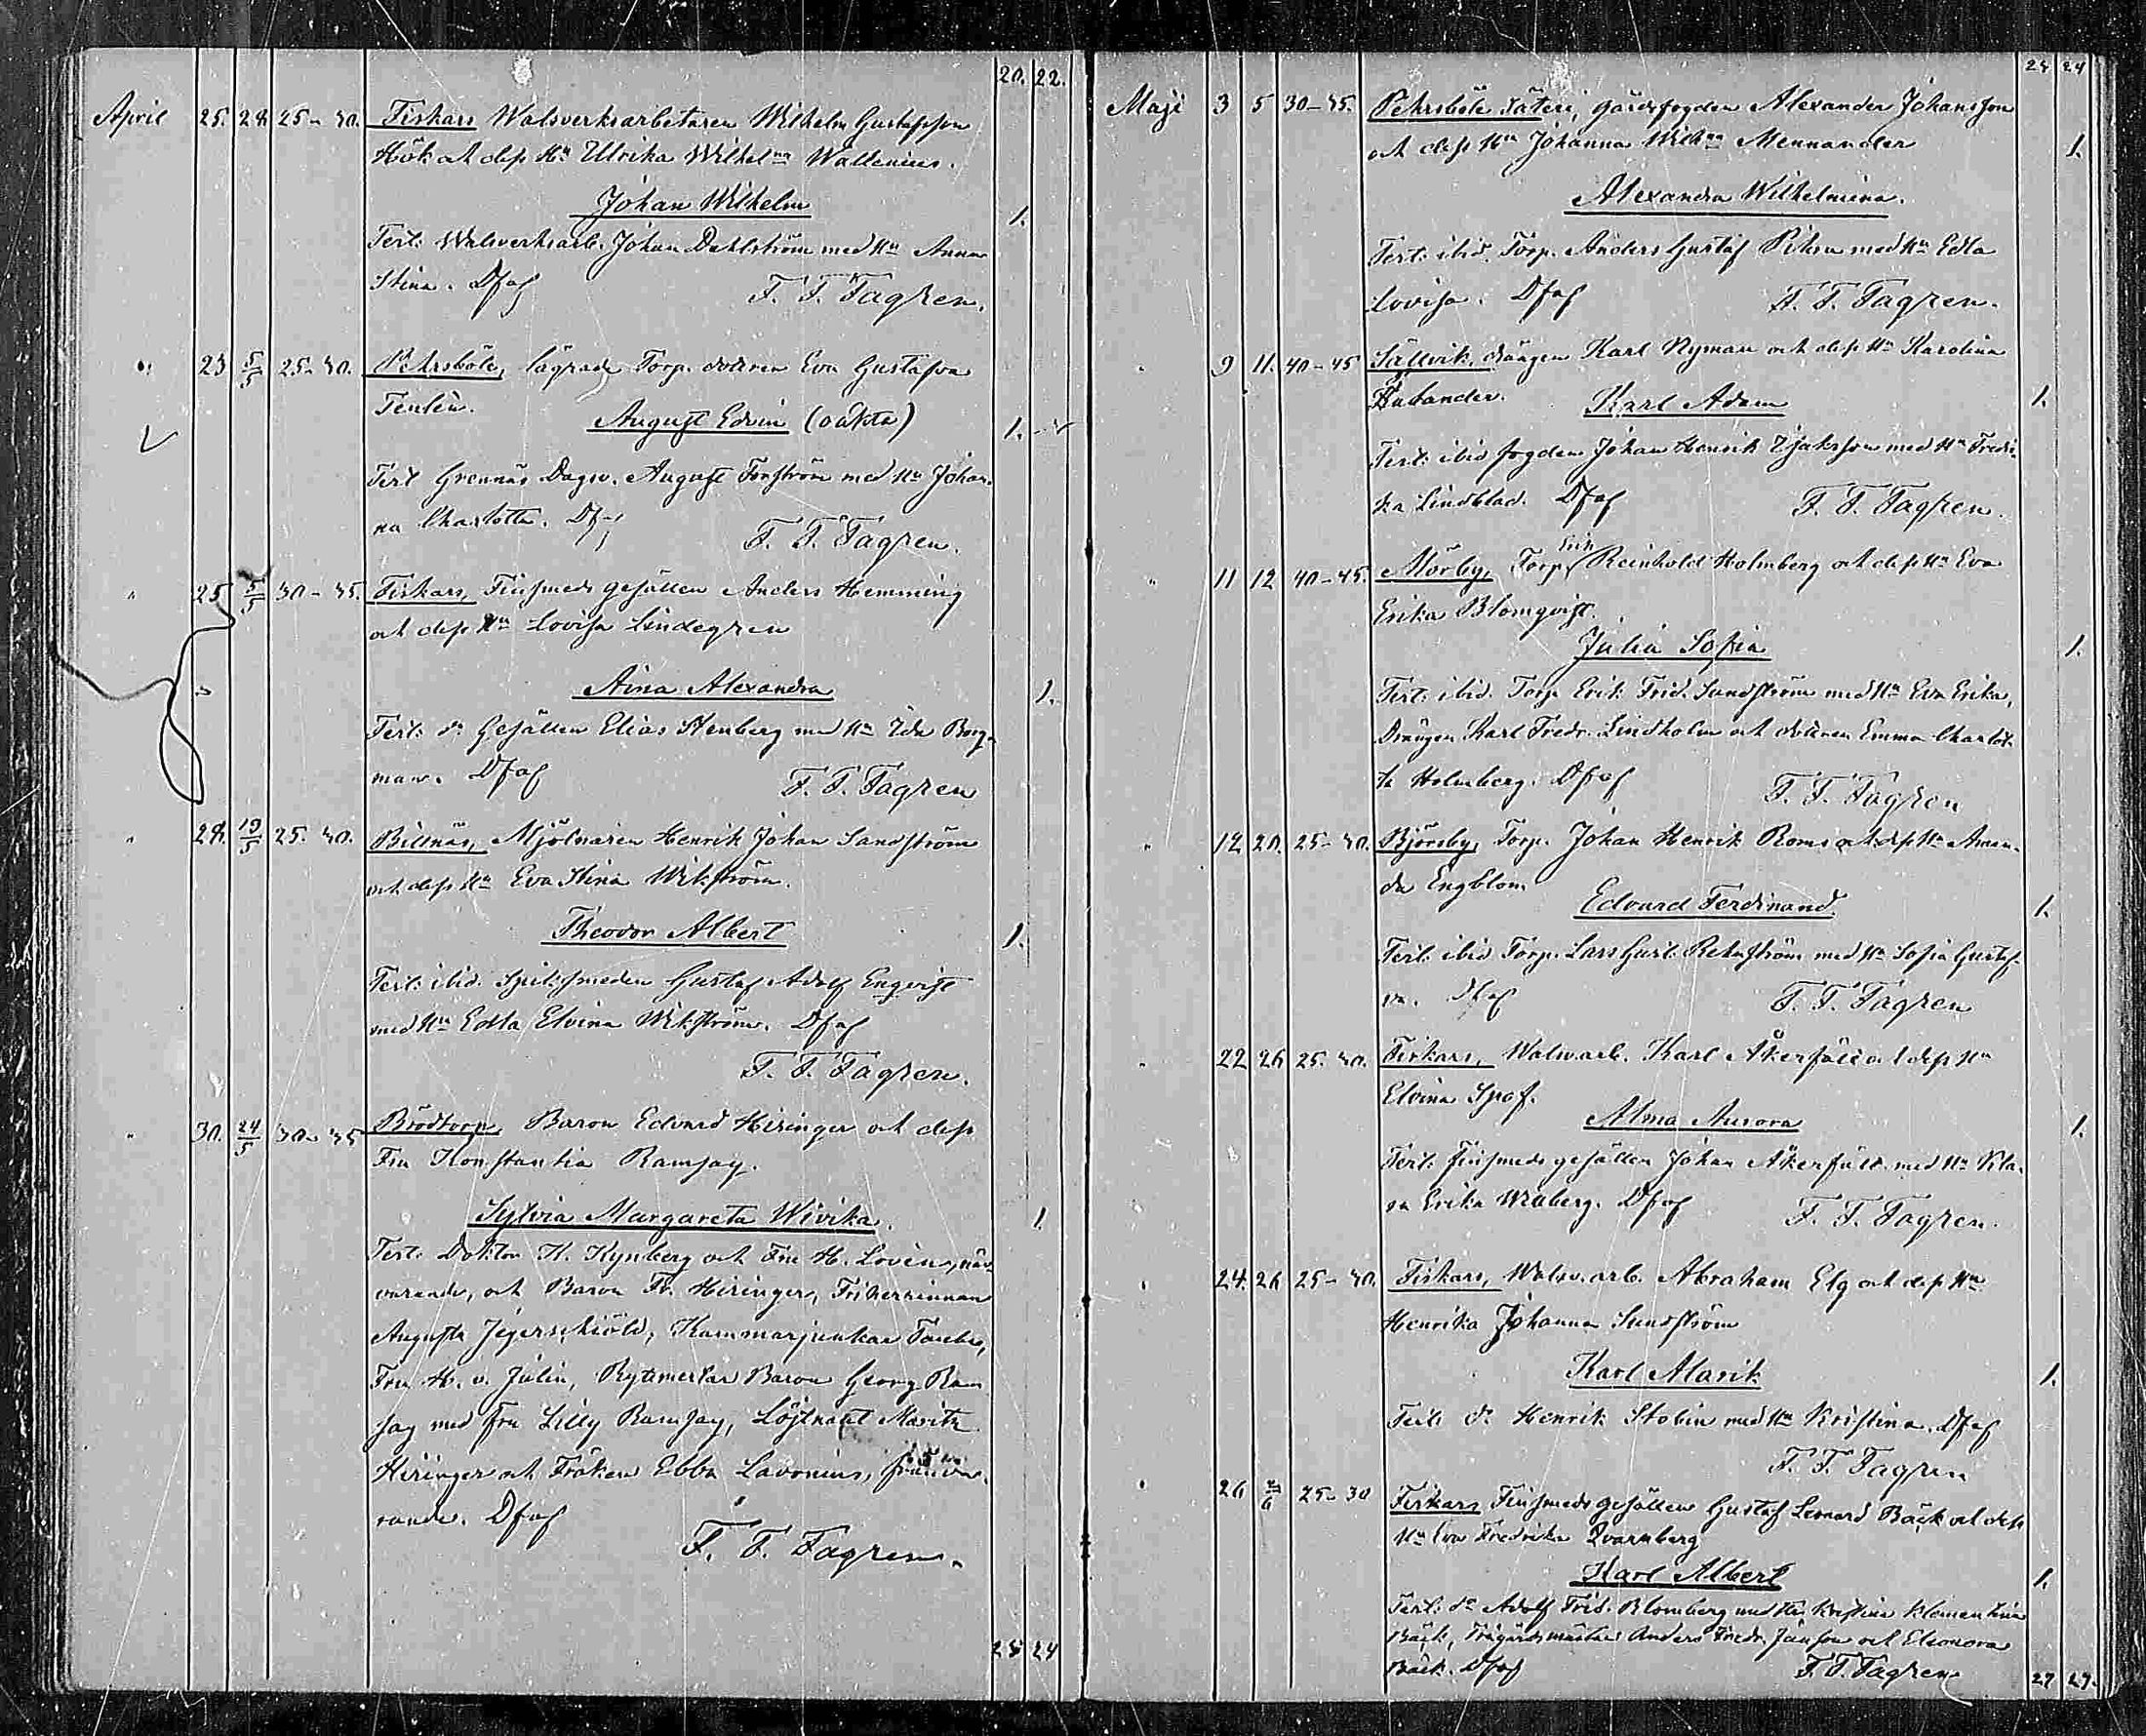 20. 22.
April 25. 28. 25-30. Fiskars Walsverksarbetaren Wilhelm Gustafsson
Hök och dess Hu Ulrika Wilhelna Wallenius.
Johan Wilhelm 1.
Test: Walsverksarb. Johan Dahlström med Hu Anna
Stina. Dfaf F. F. Fagren.
" 23 5/5 25-30. Pehrsböle, lägrade Torp. dottren Eva Gustafva
August Edvin (oäkta) 1.
Test Grennäs Dagsv. August Forsström med Hu Johan-
na Charlotta. Dfaf F. F. Fagren.
" 25 5/5 30-35. Fiskars, Finsmeds gesällen Anders Hemming
och dess Hu Lovisa Lindegren
Aina Alexandra 1.
Test: do Gesällen Elias Stenberg med Hu Ida Berg-
man. Dfaf F. F. Fagren
" 28. 19/5 25-30. Billnäs, Mjölnaren Henrik Johan Sandström
och dess Hu Eva Stina Wikström.
Theodor Albert 1.
Test: ibid. Spiksmeden Gustaf Adolf Engvist
med Hu Edla Elvina Wikström. Dfaf
F. F. Fagren.
" 30. 24/5 30-35 Brödtorp, Baron Edvard Hisinger och dess
Fru Konstantia Ramsay.
Sylvia Margareta Wivika. 1.
Test: Doktor H. Kynberg och Fru H. Lovén, när-
varande, och Baron Fr. Hisinger, Friherrinnan
Augusta Jegerschiöld, Kammarjunkar
Fru H. v. Julin, Ryttmestar Baron Georg Ram
say med fru Lilly Ramsay, Löjtnant Moritz
Hisinger och Fröken Ebba Lavonius, frånva-
rande. Dfaf
F. F. Fagren.
25 24
25 24
Maji 3 5 30-35. Pehrsböle Säteri, gårdsfogden Alexander Johansson
och dess Hu Johanna Wilhna Mennander 1.
Alexandra Wilhelmina.
Test: ibid. Torp. Anders Gustaf Pihra med Hu Edla
Lovisa. Dfaf F. F. Fagren.
" 9 11. 40-45 Sällvik, drängen Karl Nyman och dess Hu Karolina
Karl Adam 1.
Test: ibid fogden Johan Henrik Isaksson med Hu Fredri-
ka Lindblad. Dfaf F. F. Fagren.
Erik
" 11 12 40-45. Mörby, Torp. Reinhold Holmberg och dess Hu Eva
Erika Blomqvist.
Julia Sofia 1.
Test: ibid. Torp Erik Frid. Sundström med Hu Eva Erika,
Drängen Karl Fredr. Lindholm och dottren Emma Charlot-
ta Holmberg. Dfaf F. F. Fagren
" 12 20. 25-30. Björsby, Torp. Johan Henrik Roms och dess Hu Aman-
da Engblom
Edvard Ferdinand. 1.
Test: ibid Torp. Lars Gust. Rehnström med Hu Sofia Gustaf-
va. Dfaf F. F. Fagren
" 22 26 25-30. Fiskars, Walsv.arb. Karl Åkerfält och dess Hu
Elvina Spof.
Alma Aurora 1.
Test: finsmeds gesällen Johan Åkerfält med Hu Kla-
ra Erika Wraberg. Dfaf F. F. Fagren.
" 24. 26 25-30. Fiskars, Walsv.arb. Abraham Elg och dess Hu
Henrika Johanna Sundström
Karl Alarik 1.
Test: do Henrik Stolin med Hu Kristina. Dfaf
F. F. Fagren
" 26 25-30 Fiskars Finsmedsgesällen Gustaf Leonard Bäck och dess
Hu Eva Fredrika Qvarnberg
Karl Albert 1.
Test: do Adolf Frid. Blomberg med Hu Kristina Klementina
Bäck, Trägårdsmästar Anders Fredr. Janson och Eleonora
Bäck. Dfaf F. F. Fagren
27 27.